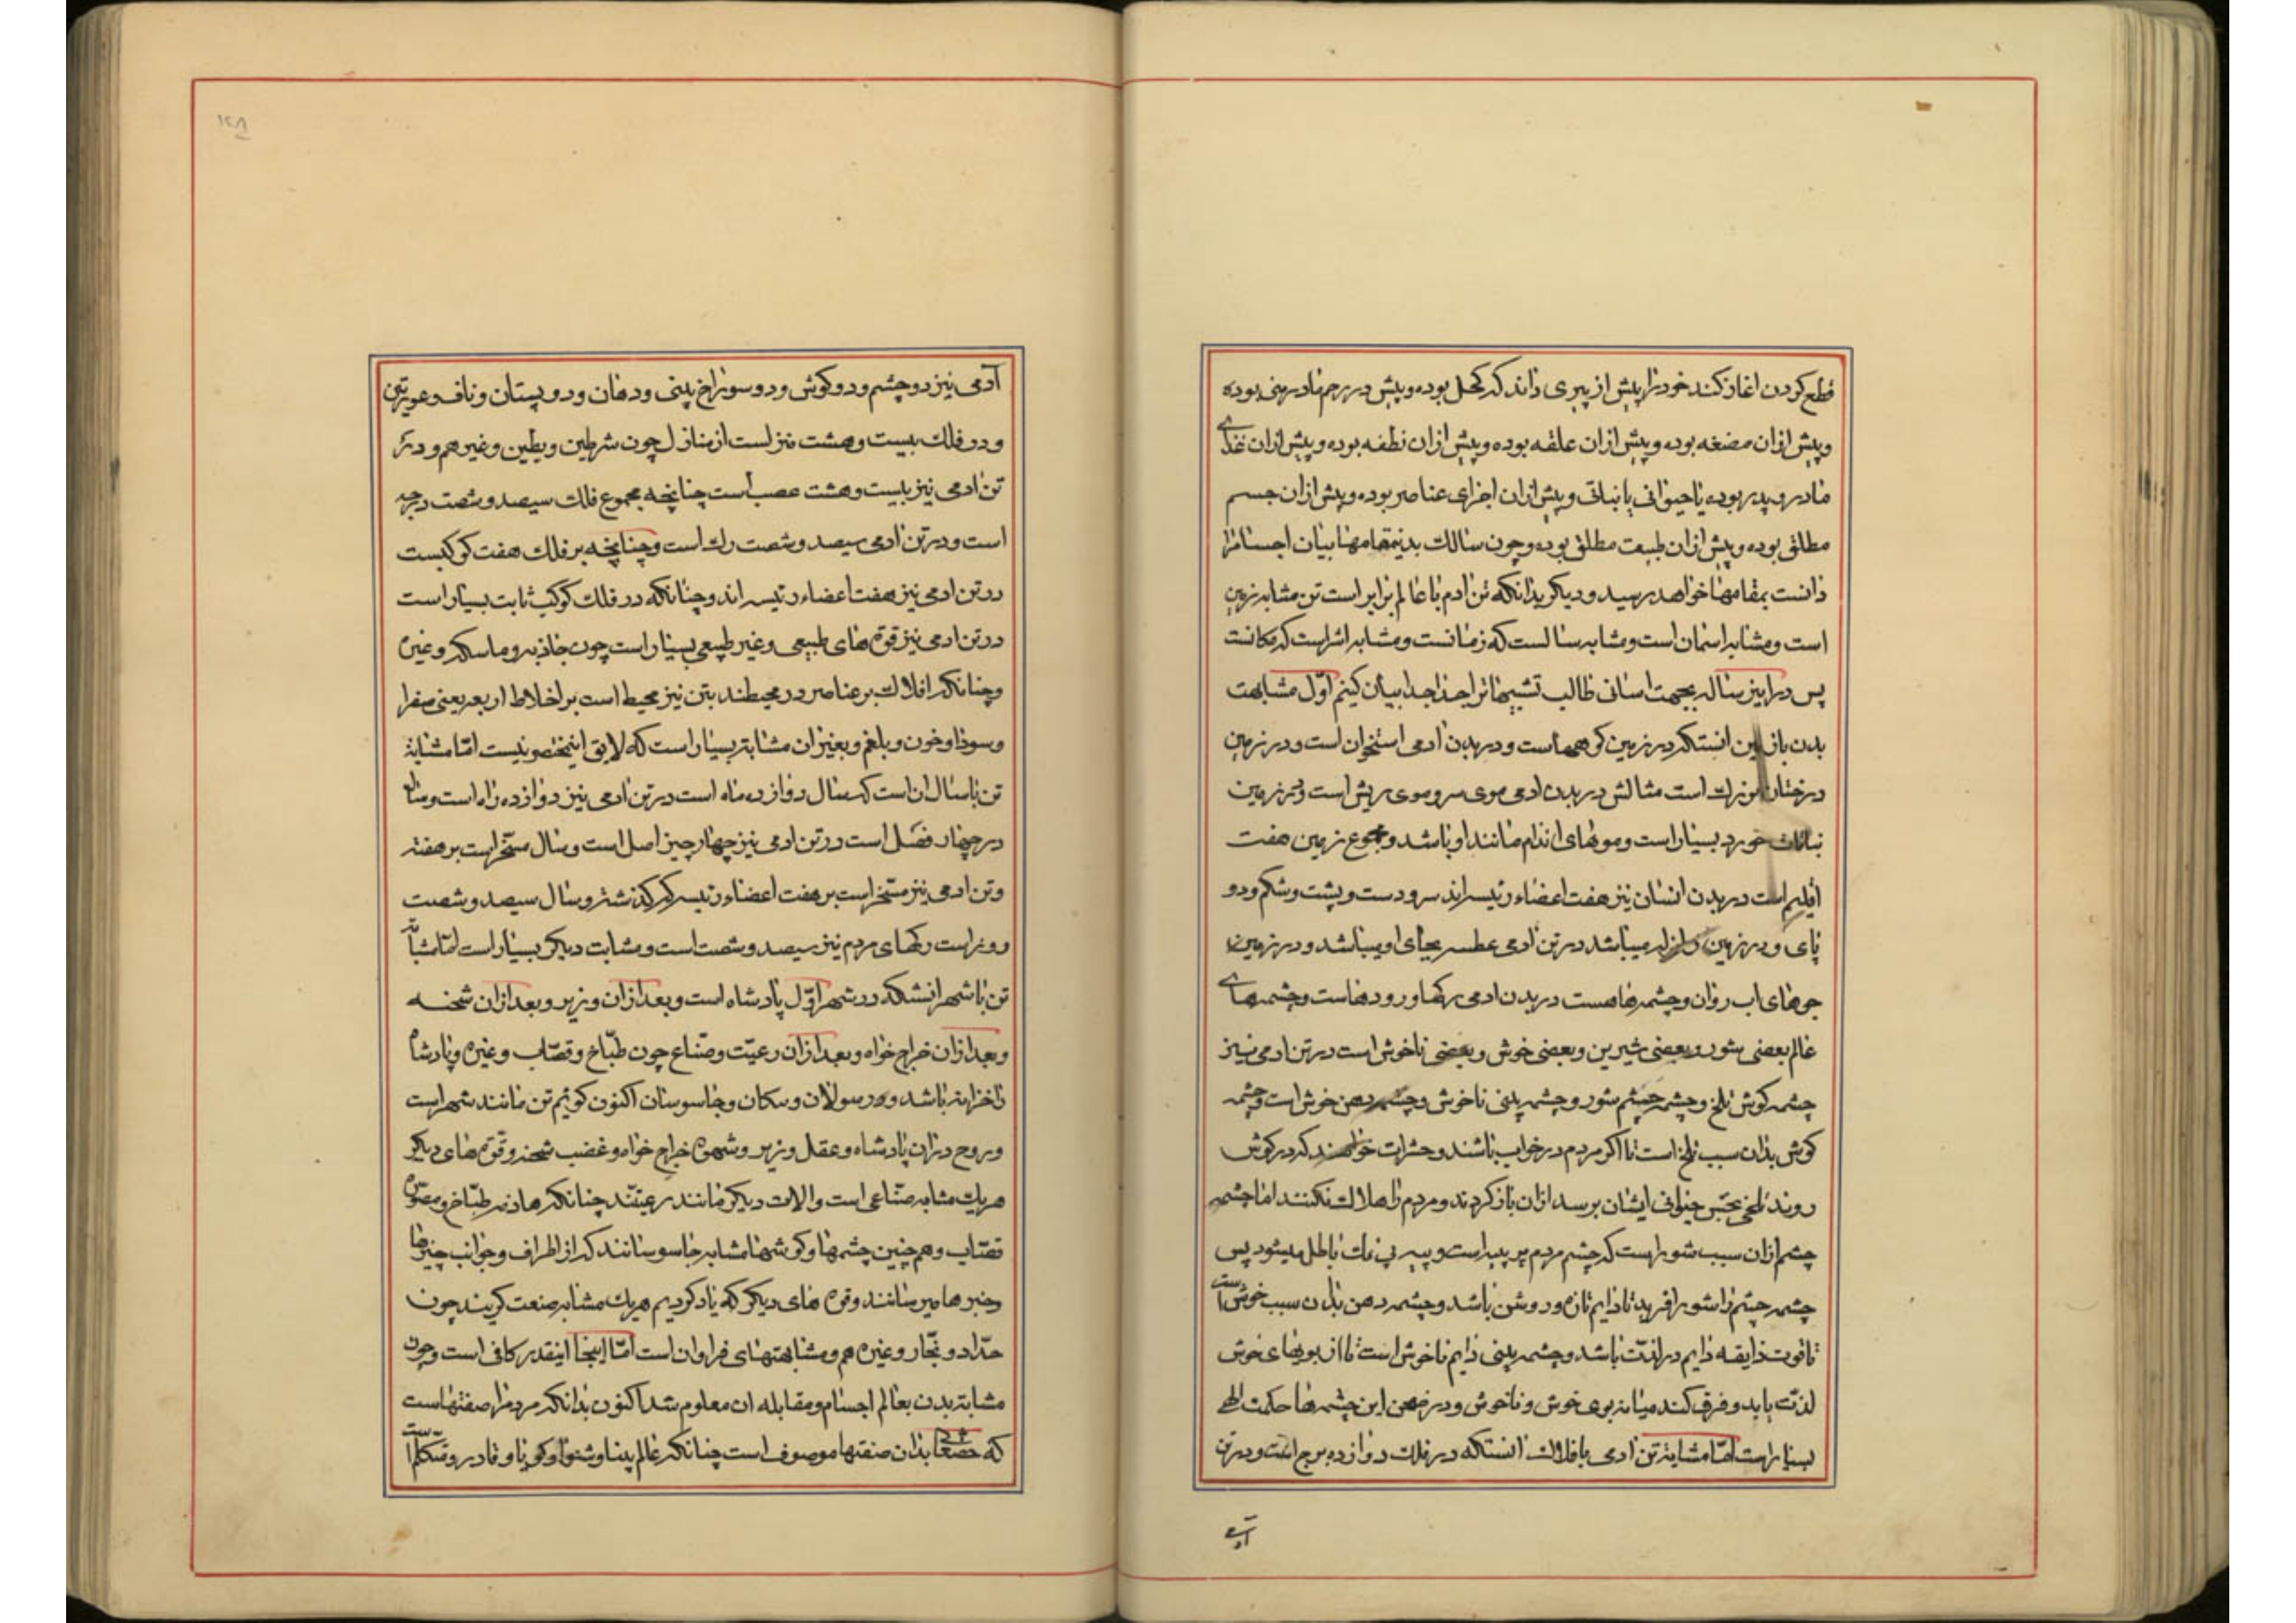 قطع کردن اغاز کند خود را پیش از پیری داند که کحل بوده و پیش در رحم مادر منی بوده
و پیش ازان مضغه بوده و پیش ازان علقه بوده و پیش ازان نطفه بوده و پیش ازان غذای
مادر و پدر بوده یا حیوانی یا نباتی و پیش ازان اجزای عناصر بوده و پیش ازان جسم
مطلق بوده و پیش ازان طبیعت مطلق بوده و چون سالک بدینمقامها بیان اجسام را
دانست بمقامها خواهد رسید و دیکر بدانکه تن ادم با عالم برابر است تن مشابه زمین
است و مشابه اسمان است و مشابه سالست که زمانست و مشابه شهر است که مکانست
پس درین رساله بجهت اسانی طالب تشبیهات را جدا جدا بیان کنیم اول مشابهت
بدن با زمین انستکه در زمین کوههاست و در بدن ادمی استخوان است و در زمین
درختان بزرک است مثالش در بدن ادمی موی سر و موی ریش است و در زمین
نباتات خورد بسیار است و مویهای اندام مانند او باشد و مجموع زمین هفت
اقلیم است در بدن انسان نیز هفت اعضاء رئیسه اند سر و دست و پشت و شکم و دو
پای و در زمین زلزله میباشد در تن ادمی عطسه بجای او میباشد و در زمین
جوهای اب روان و چشمه هاهست در بدن ادمی رکها و رودهاست و چشمهای
عالم بعضی شور و بعضی شیرین و بعضی خوش و بعضی ناخوش است در تن ادمی نیز
چشمه کوش تلخ و چشمه چشم شور و چشمه بینی ناخوش و چشمه دهن خوش است و چشمه
کوش بدان سبب تلخ است تا اکر مردم در خواب باشند و حشرات خواهند که در کوش
روند تلخی بایشان برسد ازان باز کردند و مردم را هلاک نکنند اما چشمه
چشم ازان سبب شور است که چشم مردم پر پیه است و پیه بی نمک باطل میشود پس
چشمه چشم را شور افرید تا دایم تازه و روشن باشد و چشمه دهن بدان سبب خوش است
تا قوت ذایقه دایم در لذت باشد و چشمه بینی دایم ناخوش است تا از بویهای خوش
لذت یابد و فرق کند میانه بوی خوش و ناخوش و در ضمن این چشمه ها حکمت الهی
بسیار است اما مشابهت تن ادمی با افلاک انستکه در فلک دوازده برج است و در تن
آدمی
۱۲۸
آدمی نیز دو چشم و دو کوش و دو سوراخ بینی و دهان و دو پستان و ناف و عورتین
و در فلک بیست و هشت منزلست از منازل چون شرطین و بطین و غیرهم و در
تن ادمی نیز بیست و هشت عصب است چنانچه مجموع فلک سیصد و شصت درجه
است و در تن ادمی سیصد و شصت رک است و چنانچه بر فلک هفت کوکبست
در تن ادمی نیز هفت اعضاء رئیسه اند و چنانکه در فلک کوکب ثابت بسیار است
در تن ادمی نیز قوه های طبیعی و غیر طبیعی بسیار است چون جاذبه و ماسکه و غیره
و چنانکه افلاک بر عناصر در محیطند بتن نیز محیط است بر اخلاط اربعه یعنی صفرا
و سودا و خون و بلغم و بغیر ان مشابهت بسیار است که لایق اینمختصر نیست اما مشابهة
تن با سال ان است که سال دوازده ماه است در تن ادمی نیز دوازده راه است و سال
در چهار فصل است در تن ادمی نیز چهار چیز اصل است و سال مسخر است بر هفته
و تن ادمی نیز مسخر است بر هفت اعضاء رئیسه که گذشت و سال سیصد و شصت
روز است رکهای مردم نیز سیصد و شصت است و مشابهت دیکر بسیار است اما مشابهت
تن با شهر انستکه در شهر اول پادشاه است و بعد ازان وزیر و بعد ازان شحنه
و بعد ازان خراج خواه و بعد ازان رعیت و صناع چون طباخ و قصاب و غیره و پادشاه
را خزانه باشد و رسولان و سکان و جاسوسان اکنون کوئیم تن مانند شهر است
و روح دران پادشاه و عقل وزیر و شهوه خراج خواه و غضب شحنه و قوه های دیکر
هریک مشابه صناعی است و الات دیکر مانند رعیتند چنانکه هاضمه طباخ و مصوره
قصاب و هم چنین چشمها و کوشها مشابه جاسوسانند که از اطراف و جوانب چیزها
و خبرها میرسانند و قوه های دیکر که یاد کردیم هریک مشابه صنعت کریند چون
حداد و نجار و غیره هم و مشابهتهای فراوان است اما اینجا اینقدر کافی است و چون
مشابهت بدن بعالم اجسام و مقابله ان معلوم شد اکنون بدانکه مردم را صفتهاست
که حقتعالی بدان صفتها موصوف است چنانکه عالم بینا و شنوا و کویا و قادر و متکلم است